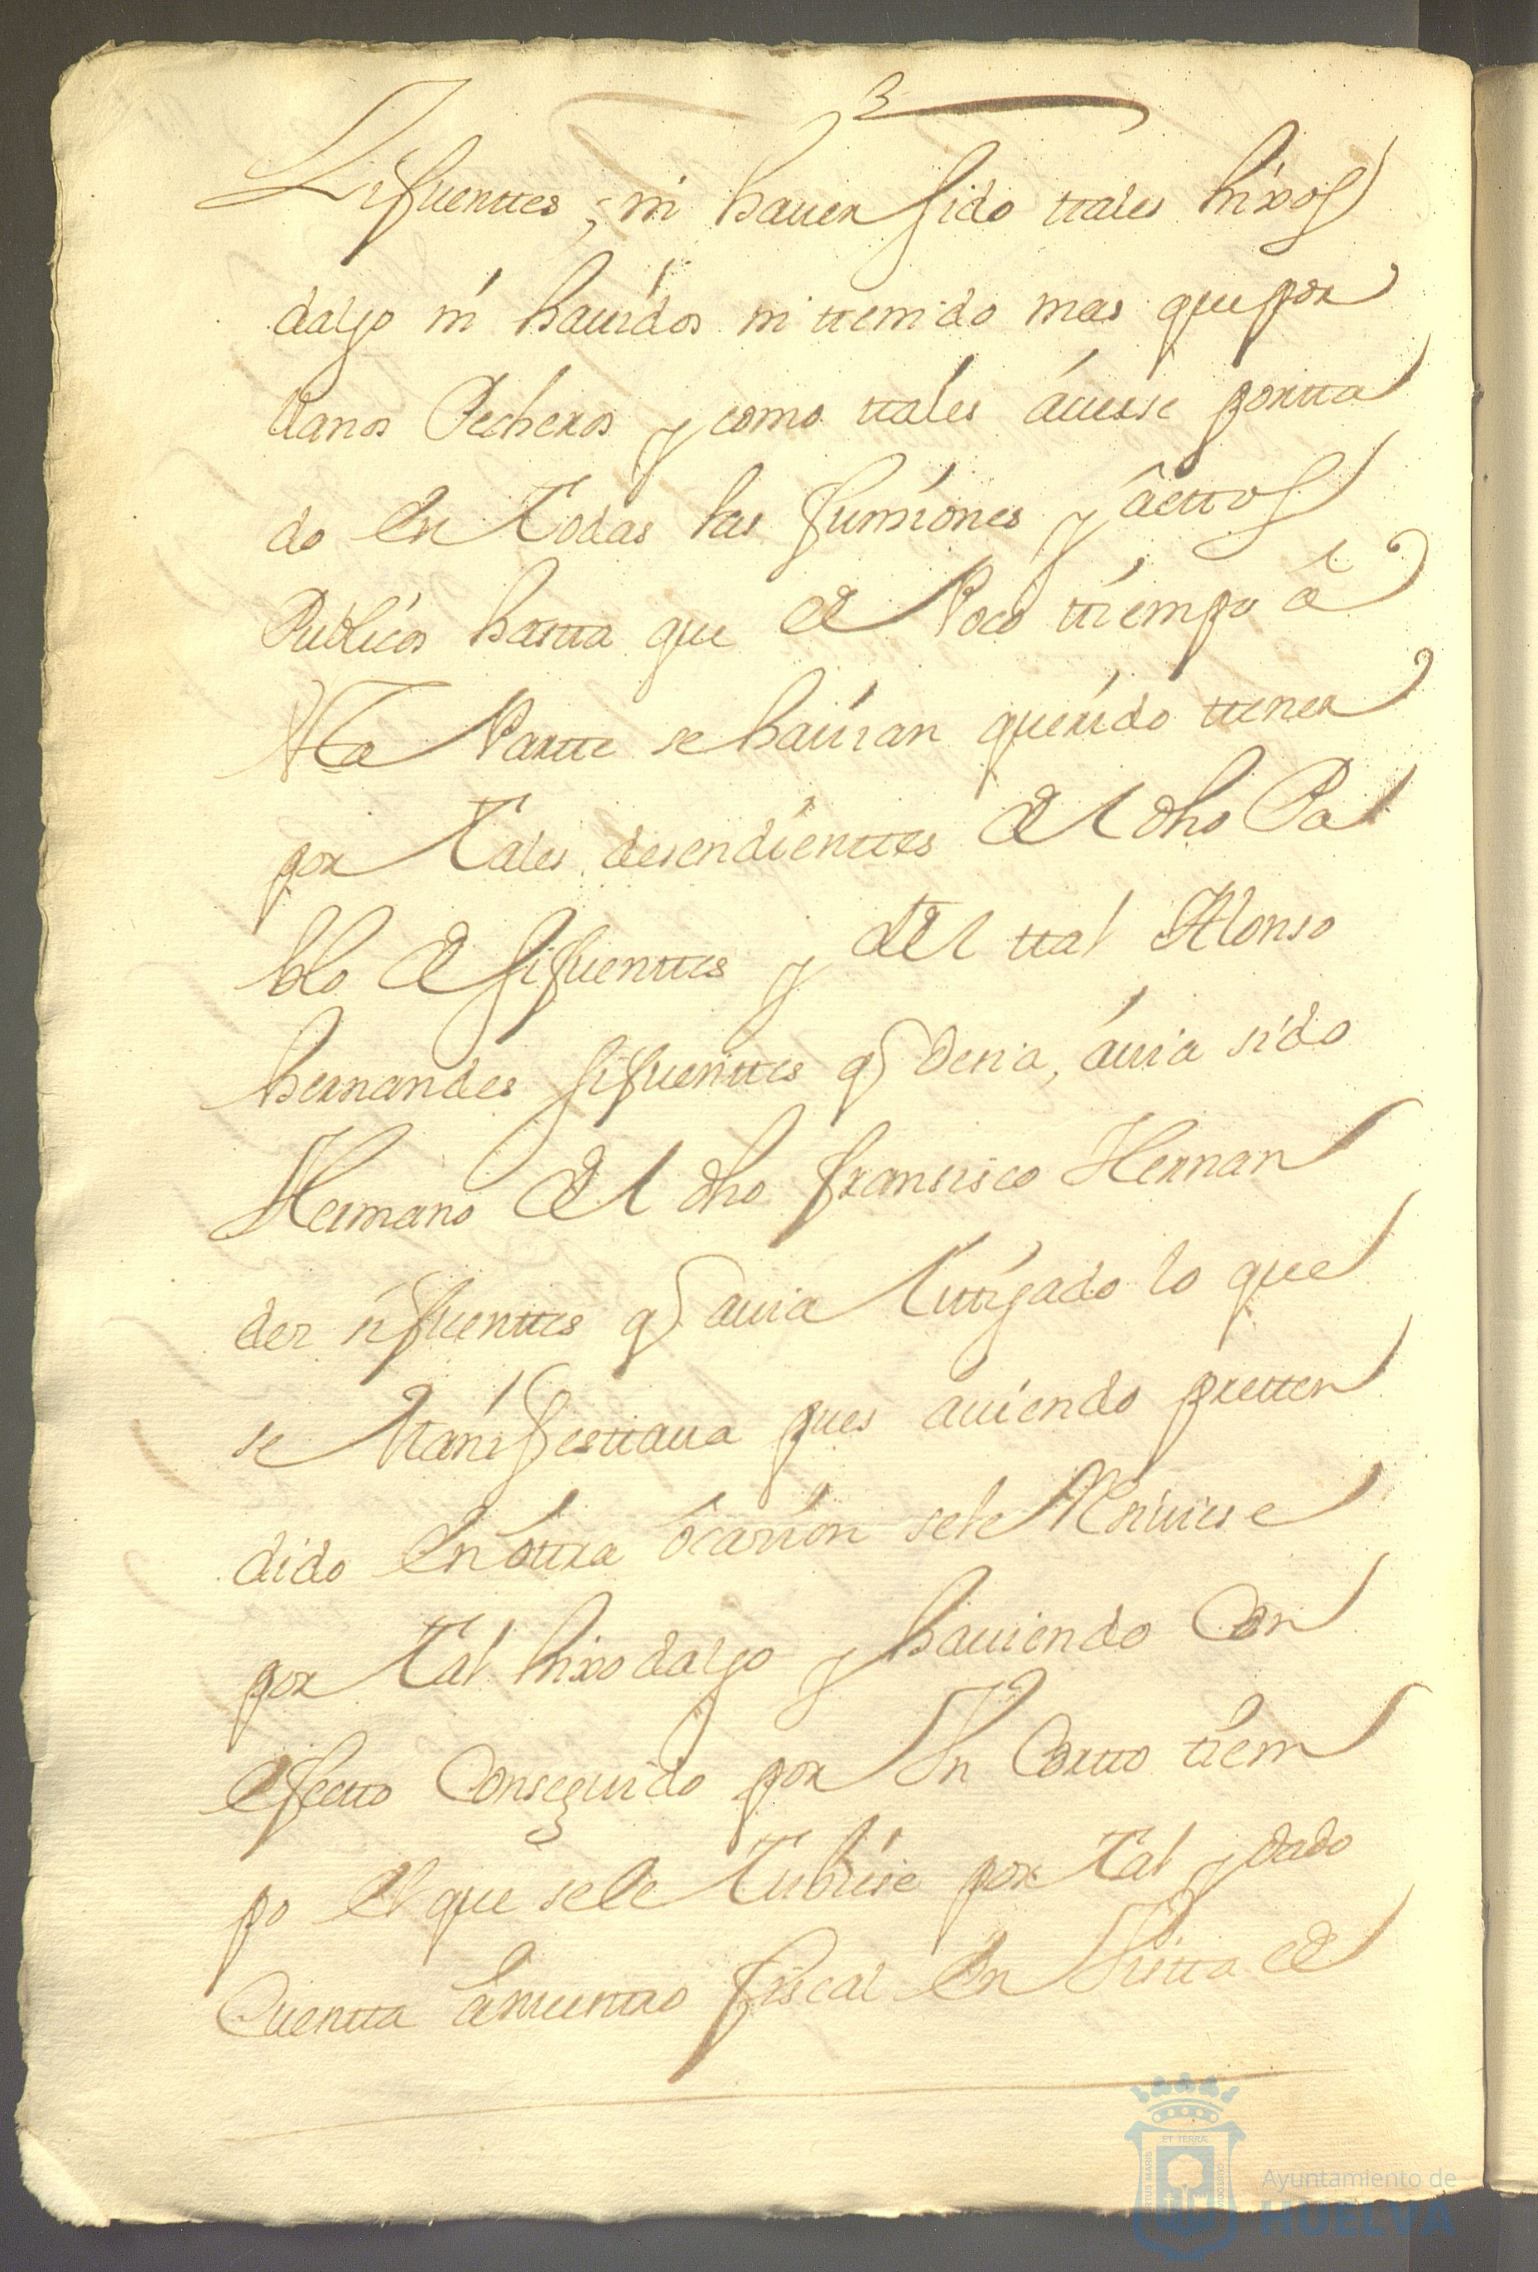 Sifuenttes, ni hauer sido ttales hixos
dalgo ni hauidos ni ttenido mas que por
llanos Pecheros y como ttales áuerse portta
do en Todas las funsiones y âcttos
Publicos hastta que de Poco ttiempo â
estta Partte se hauian querido ttener
por Tales desendienttes del dho Pa
blo de Sifuenttes y del ttal Alonso
hernandes Sifuenttes q desia, áuia sido
Hermano del dho fransisco Hernan
dez sifuenttes q auia Littigado lo que
se Manifesttaua pues auiendo pretten
dido en ottra ôcasion sele Resiuiese
por Tal hixodalgo y hauiendo Con
efectto Conseguido por Un Cortto tiem
po el que sele Tubiese por Tal y dado
Cuentta ânuesttro fiscal en Vistta de
Ayuntamiento de
HUELVA